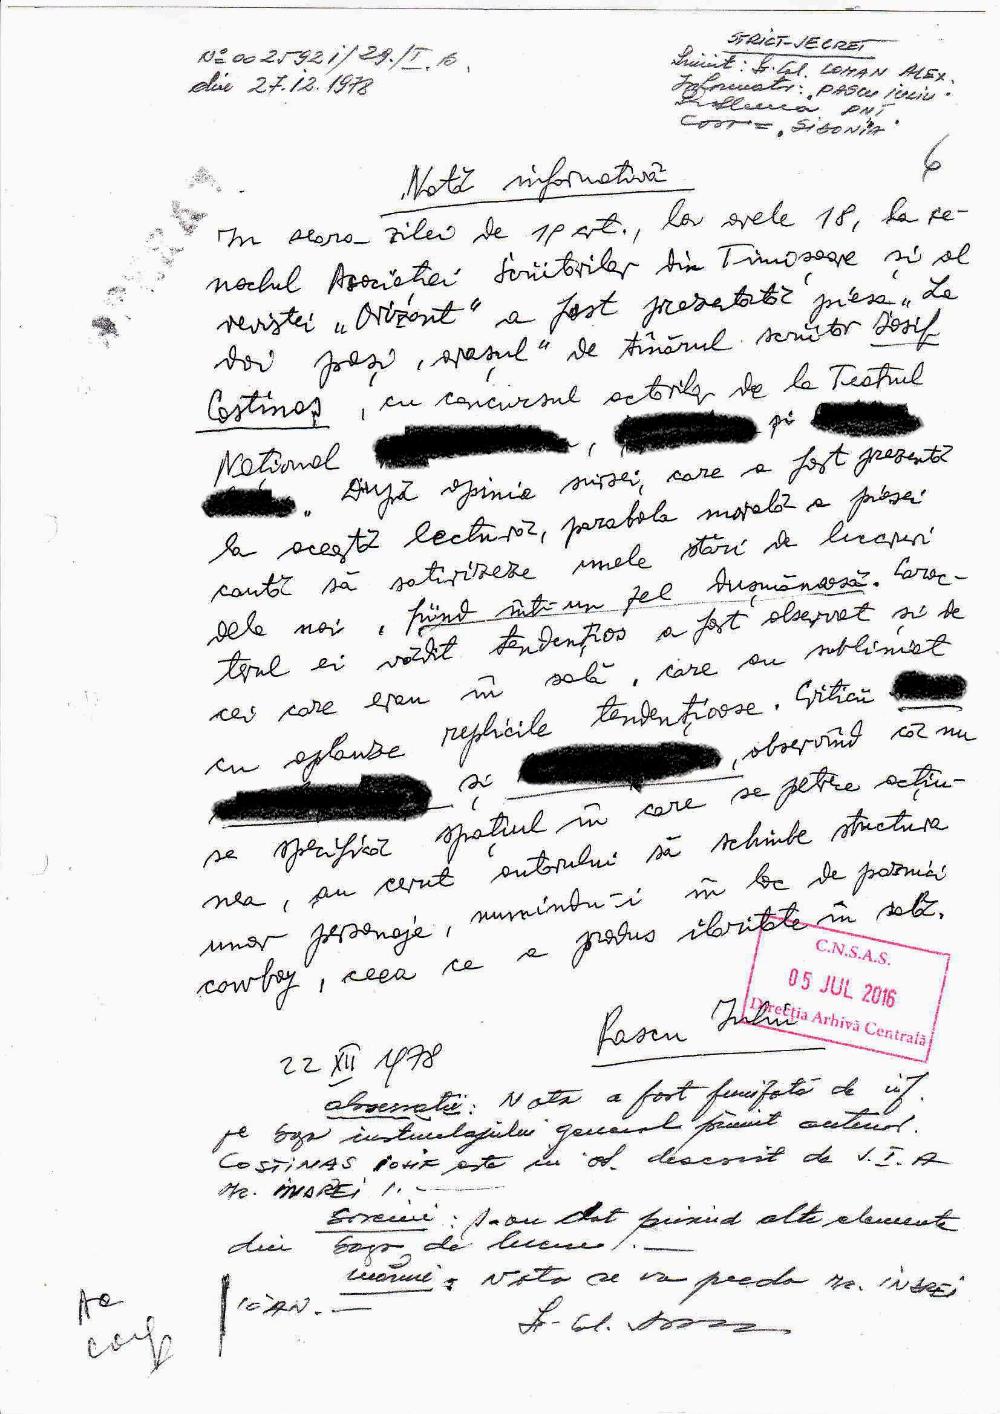 No 002592 i/29./I. B.
din 27.12.1978
STRICT-SECRET
Primit: Lt. Col. LOMAN ALEX.
Informator: "PASCU IULIU"
Problema PNŢ
Casa "SIDONIA"
6
Notă informativă
In seara zilei de 19 crt., la orele 18, la ce-
naclul Asociatiei Scriitorilor din Timişoara şi al
revistei „Orizont" a fost prezentată piesa „La
doi paşi, oraşul" de tînărul scriitor Iosif
Costinaş, cu concursul actorilor de la Teatrul
Naţional , şi
. După opinia sursei, care a fost prezentă
la această lectură, parabola morală a piesei
caută să satirizeze unele stări de lucruri
dela noi, fiind într-un fel duşmănoasă. Carac-
terul ei vădit tendenţios a fost observat şi de
cei care erau în sală, care au subliniat
cu aplauze replicile tendenţioase. Criticii
şi , observînd că nu
se specifică spaţiul în care se petrece acţiu-
nea, au cerut autorului să schimbe structura
unor personaje, numindu-i în loc de paznici
cowboy, ceea ce a produs ilaritate în sală.
Pascu Iuliu
22 XII 1978
C.N.S.A.S.
05 JUL 2016
Direcţia Arhivă Centrală
observaţii: Nota a fost furnizată de inf.
pe baza instructajului general primit anterior.
COSTINAS IOSIF este in deservit de S.I.A
Mr. INDREI I.
Sarcini: S-au dat privind alte elemente
din baza de lucru.
măsuri: Nota se va preda Mr. INDREI
IOAN.
Lt-Col.